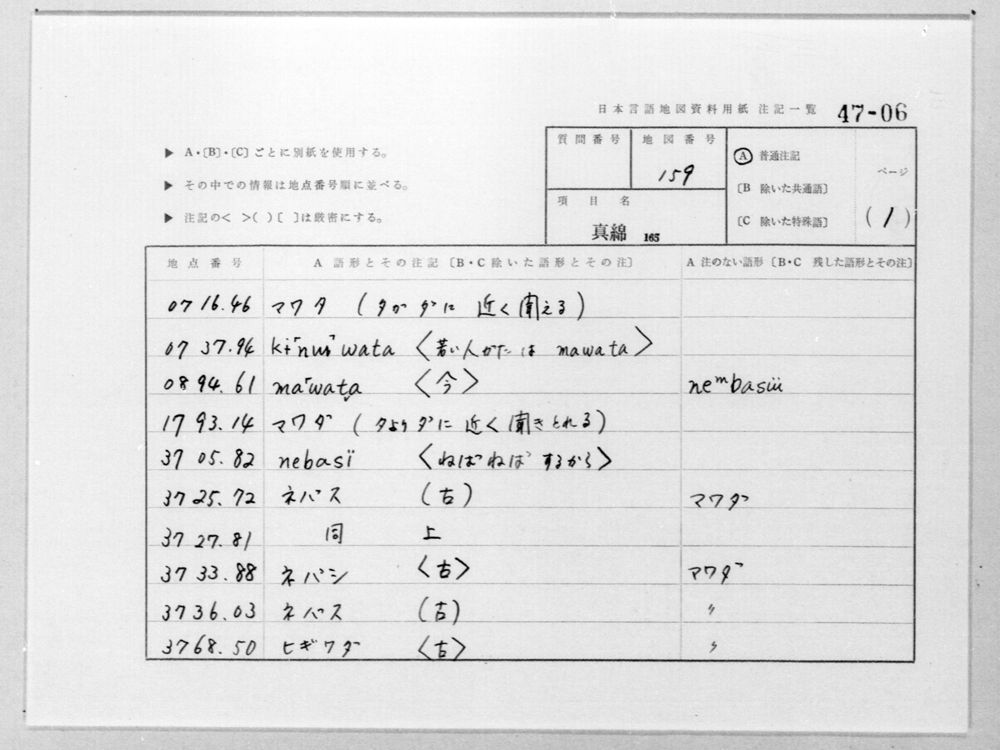 日本言語地図資料用紙 注記一覧 47-06
▶ A・〔B〕・〔C〕ごとに別紙を使用する。
▶ その中での情報は地点番号順に並べる。
▶ 注記の< >( )[ ]は厳密にする。
質問番号
地図番号
159
項目名
真綿 165
Ⓐ 普通注記
〔B 除いた共通語〕
〔C 除いた特殊語〕
ページ
(1)
地点番号 A 語形とその注記〔B・C除いた語形とその注〕 A 注のない語形〔B・C 残した語形とその注〕
07 16.46 マワタ (タがダに近く聞える)
07 37.94 ki「nuɯ」wata 〈若い人がたは mawata〉
08 94.61 ma「wata 〈今〉 neᵐbasïï
17 93.14 マワダ (タよりダに近く聞きとれる)
37 05.82 nebasï 〈ねばねばするから〉
37 25.72 ネバス (古) マワダ
37 27.81 同上
37 33.88 ネバシ 〈古〉 マワダ
37 36.03 ネバス (古) 〃
37 68.50 ヒギワダ 〈古〉 〃